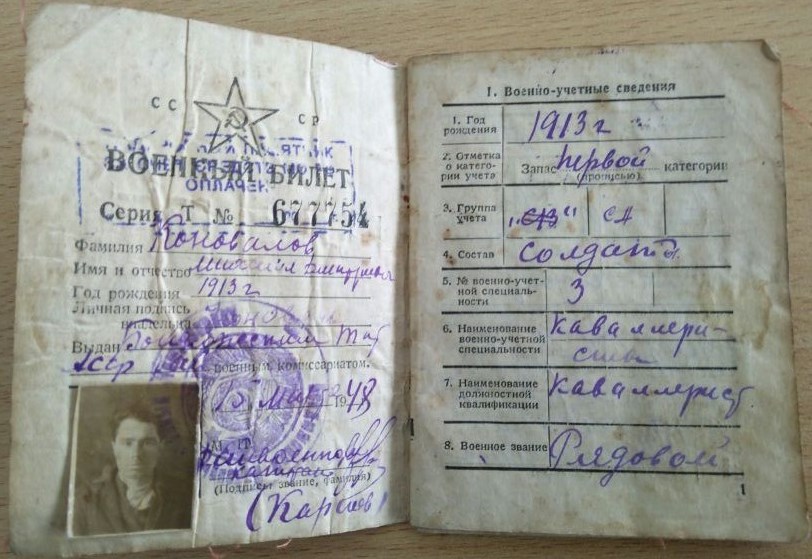 СС СР
ОПЛАЧЕН
ВОЕННЫЙ БИЛЕТ
Серия Т № 677754
Фамилия Коновалов
Имя и отчество
Год рождения 1913 г
Личная подпись
владельца
Выдан Тат
АССР военным комиссариатом.
15 1948
М. П.
капитан
(Подпись, звание, фамилия)
I. Военно-учетные сведения
1. Год
рождения
1913 г
2. Отметка
о катего-
рии учета
Запас первой категории
(прописью)
3. Группа
учета
СА
4. Состав
солдаты
5. № военно-учет-
ной специаль-
ности
3
6. Наименование
военно-учетной
специальности
Каваллери-
сты
7. Наименование
должностной
квалификации
Каваллерист
8. Военное звание
Рядовой
1